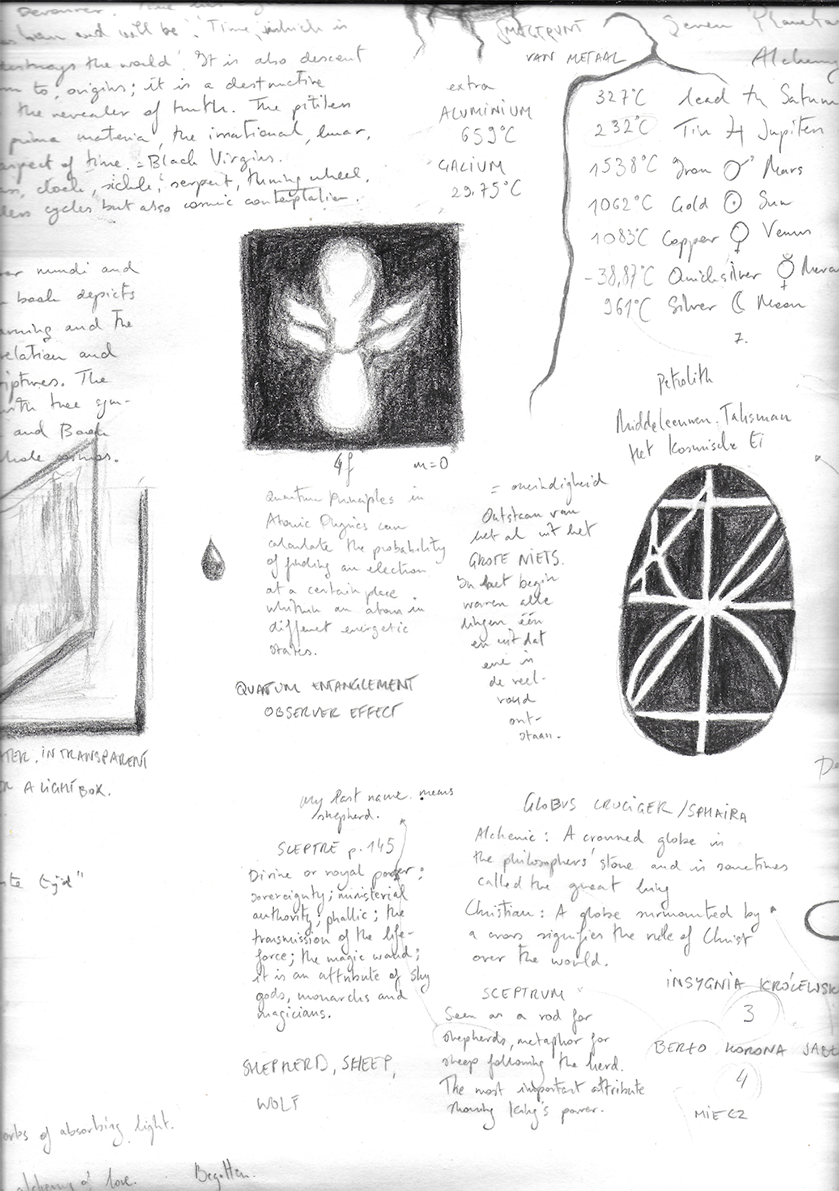 Devourer. Time
been and will be'. 'Time, which is
destroys the world'. It is also descent
to, origins; it is a destructive
the revealer of truth. The pitiless
prima materia, the irrational, lunar,
aspect of time. = Black Virgins.
clock, sickle, serpent, turning wheel.
less cycles but also cosmic contemplation.
mundi and
book depicts
and the
relation and
scriptures. The
with tree sym-
and Book
whole cosmos.
SMELTPUNT
VAN METAAL
extra
ALUMINIUM
659°C
GALIUM
29,75°C
Seven Planetar
Alchemy
327°C lead ♄ Saturn
232°C Tin ♃ Jupiter
1538°C Iron ♂ Mars
1062°C Gold ☉ Sun
1083°C Copper ♀ Venus
-38,87°C Quicksilver ☿ Mercu
961°C Silver ☾ Moon
7.
4f m=0
Quantum Principles in
Atomic Physics can
calculate the probability
of finding an electron
at a certain place
whithin an atom in
different energetic
states.
QUATUM ENTANGLEMENT
OBSERVER EFFECT
Petrolith
Middeleeuwen. Talisman
Het Kosmische Ei
= oneindigheid
Ontstaan van
het al uit het
GROTE NIETS.
In het begin
waren alle
dingen één
en uit dat
ene is
de veel-
voud
ont-
staan.
TER. IN TRANSPARENT
A LIGHTBOX.
My last name means
shepherd.
SCEPTRE p. 145
Divine or royal power;
sovereignty; ministerial
authority; phallic; the
transmission of the life-
force; the magic wand;
it is an attribute of sky
gods, monarchs and
magicians.
SHEPHERD, SHEEP,
WOLF
GLOBUS CRUCIGER / SPHAIRA
Alchemic: A crowned globe is
the philosophers' stone and is sometimes
called the great king
Christian: A globe surmounted by
a cross signifies the rule of Christ
over the world.
INSYGNIA KRÓLEWSK
3
BERŁO KORONA JABŁ
4
MIECZ
SCEPTRUM
Seen as a rod for
shepherds, metaphor for
sheep following the herd.
The most important attribute
showing king's power.
of absorbing light.
alchemy of love. Begotten.